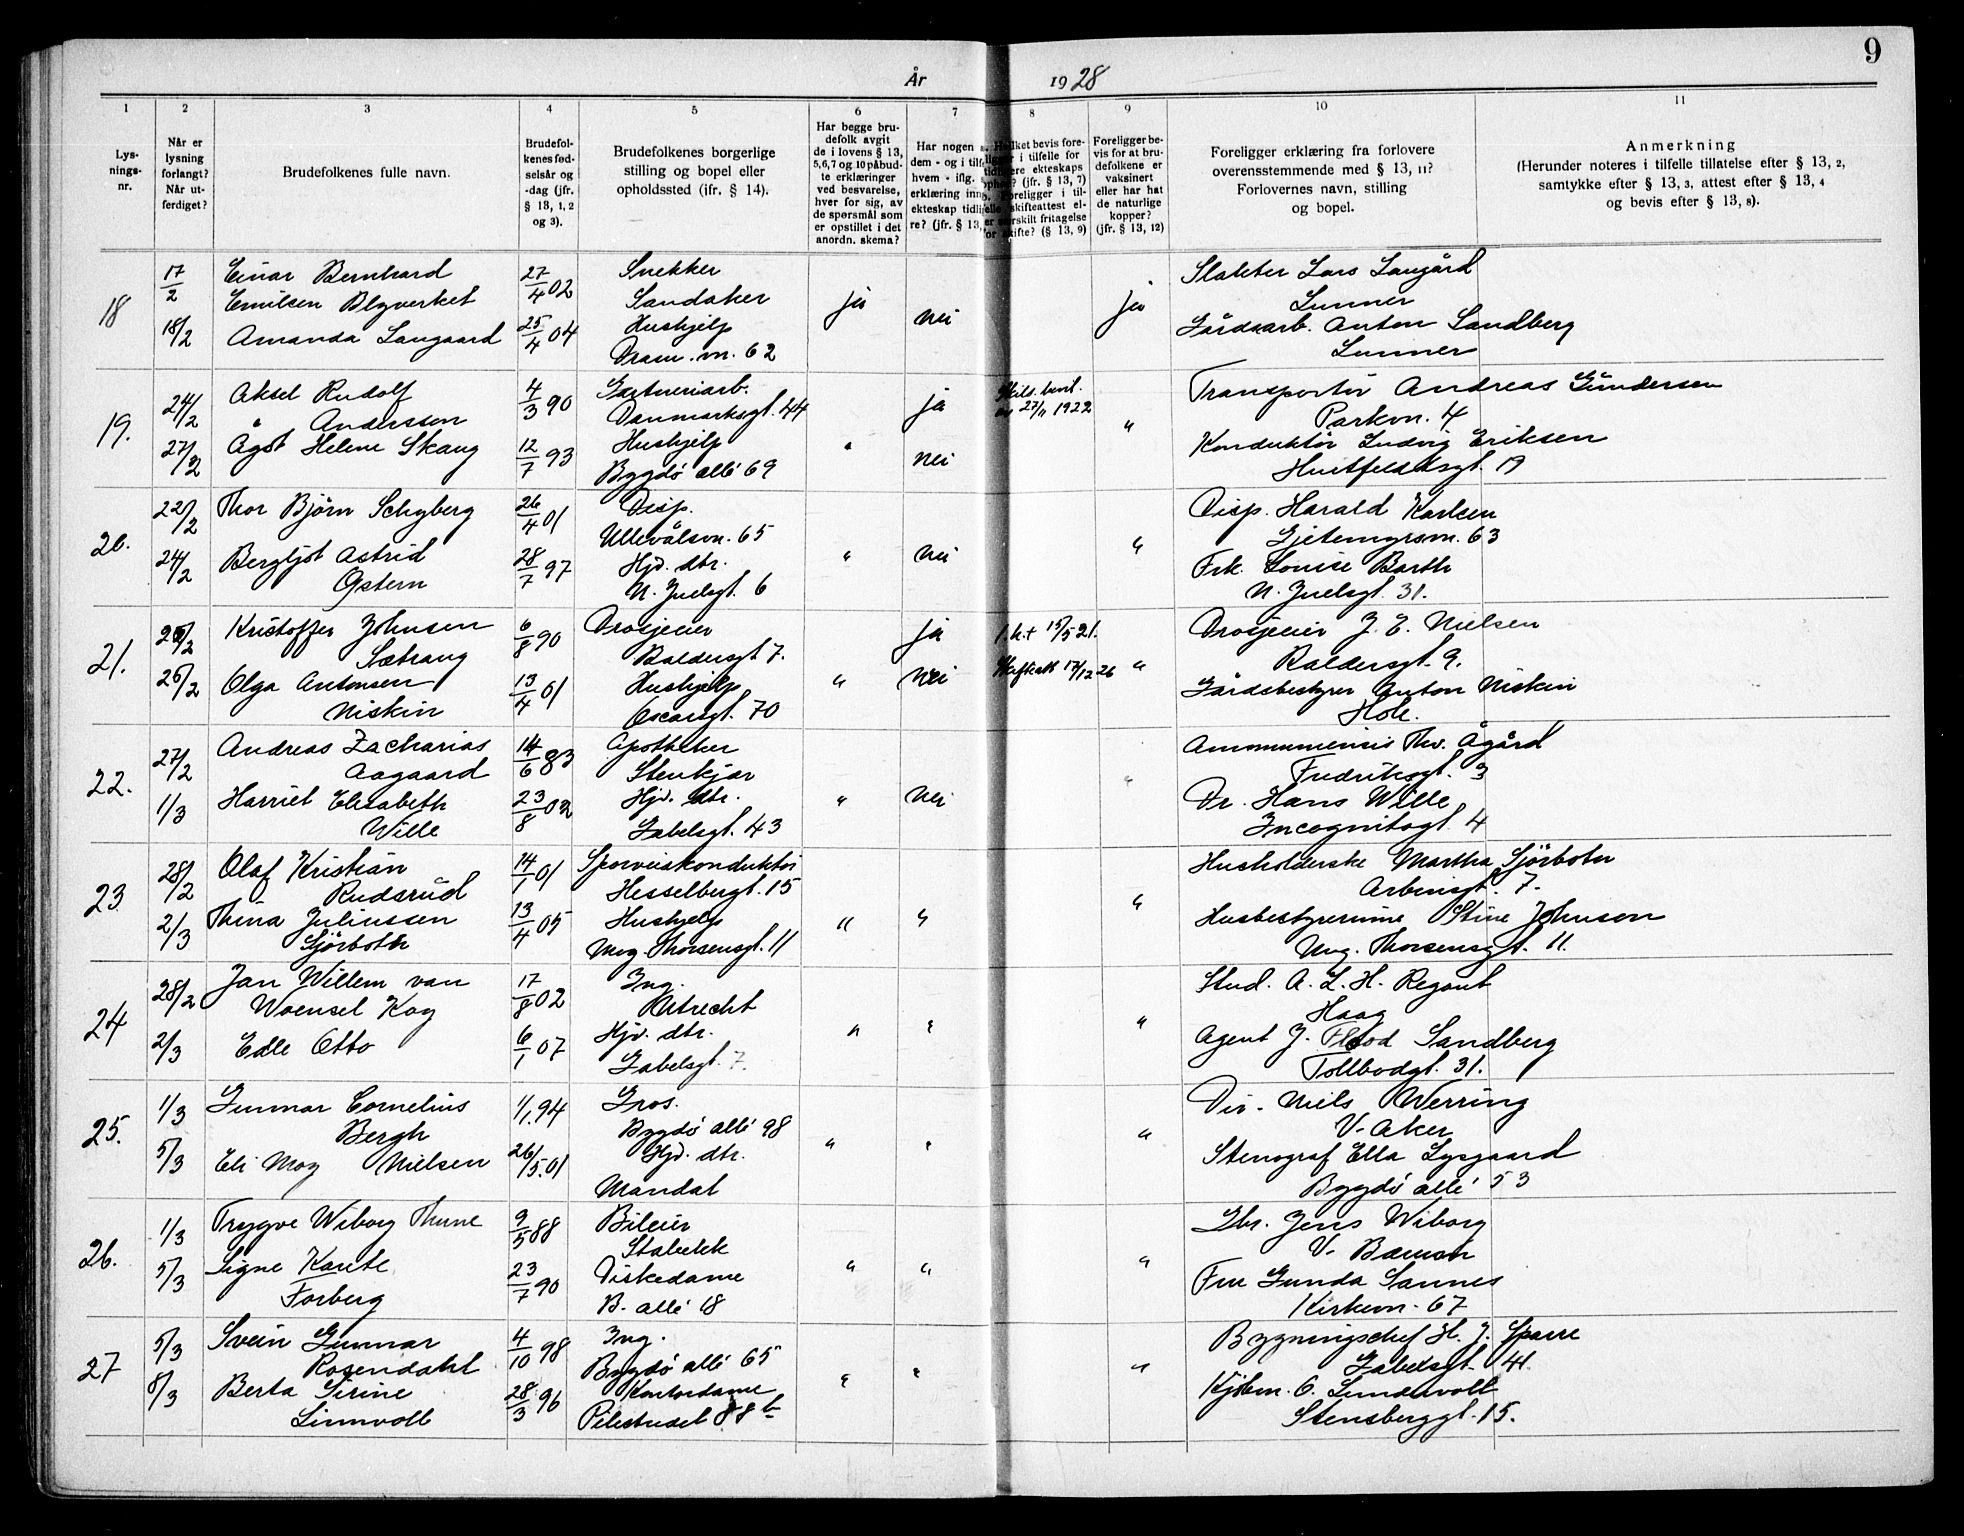 9
År 1928
1 2 3 4 5 6 7 8 9 10 11
Lys-
nings-
nr.
Når er
lysning
forlangt?
Når ut-
ferdiget?
Brudefolkenes fulle navn.
Brudefol-
kenes fød-
selsår og
-dag (jfr.
§ 13, 1, 2
og 3).
Brudefolkenes borgerlige
stilling og bopel eller
opholdssted (ifr. § 14).
Har begge bru-
defolk avgit
de i lovens § 13,
5,6,7 og 10 påbud-
te erklæringer
ved besvarelse,
hver for sig, av
de spørsmål som
er opstillet i det
anordn. skema?
Har nogen
dem - og i tilf
hvem - iflg.
erklæring inn
ekteskap tidli
re? (jfr. § 13,
ket bevis fore-
i tilfelle for
ere ekteskaps
? (jfr. § 13, 7)
Foreligger i til-
elle skifteattest el-
er særskilt fritagelse
for skifte? (§ 13, 9)
Foreligger be-
vis for at bru-
defolkene er
vaksinert
eller har hat
de naturlige
kopper?
(jfr. § 13, 12)
Foreligger erklæring fra forlovere
overensstemmende med § 13, 11?
Forlovernes navn, stilling
og bopel.
Anmerkning
(Herunder noteres i tilfelle tillatelse efter § 13, 2,
samtykke efter § 13, 3, attest efter § 13, 4
og bevis efter § 13, 8).
18 17/2 Einar Bernhard 27/4 02 Snekker Slakter Lars Langård
Emilsen Blyverket Sandaker ja nei ja Lunner
18/2 Amanda Langaard 25/4 04 Hushjelp Gårdsarb. Anton Sandberg
Dram.vn. 62 Lunner
19. 24/2 Aksel Rudolf 4/3 90 Gartneriarb. ja Skils. bevil. Transportør Andreas Gundersen
Andersson Danmarksgt. 44 27/11 1922 " Parkvn. 4
27/2 Ågot Helene Skaug 12/7 93 Hushjelp " nei Konduktør Ludvig Eriksen
Bygdö allé 69 Huitfeldtsgt. 19
20. 22/2 Thor Björn Schyberg 26/4 01 Disp. Disp. Harald Karlsen
Ullevålsvn. 65 " nei " Gjetemyrsvn. 63
24/2 Bergljot Astrid 28/7 97 Hjv. dtr. Frk. Louise Barth
Östern N. Juelsgt. 6 N. Juelsgt. 31.
21. 25/2 Kristoffer Johnsen 6/8 90 Drosjeeier ja 15/5 21. Drosjeeier J. E. Nielsen
Sætrang Baldersgt 7. Baldersgt. 9.
26/2 Olga Antonsen 13/4 01 Hushjelp " nei Skifteatt 17/12 26 " Gårdsbestyrer Anton Niskin
Niskin Oscarsgt. 70 Hole.
22. 27/2 Andreas Zacharias 14/6 83 Apotheker Thv. Ågård
Aagaard Stenkjær " Fredriksgt. 3
1/3 Harriet Elisabeth 23/8 02 Hjv. dtr. " nei Dr. Hans Wille
Wille Gabelsgt. 43 Incognitogt. 4
23 28/2 Olaf Kristian 14/1 01 Sporveiskonduktör Husholderske Martha Sjörbotn
Rudsrud Hesselbergt. 15 " Arbinsgt. 7.
2/3 Thina Juliussen 13/4 05 Hushjelp " " Husbestyrerinne Stine Johnson
Sjörbotn Mog. Thorsensgt. 11 Mog. Thorsensgt. 11.
24 28/2 Jan Willem van 17/8 02 Ing. Stud. A. L. H. Regout
Woensel Kooy Utrecht " Haag
2/3 Edle Otto 6/1 07 Hjv. dtr. " " Agent J. Flood Sandberg
Gabelsgt. 7. Tollbodgt. 31.
25. 1/3 Gunnar Cornelius 1/1 94 Gros. Dir. Niels Werring
Bergh Bygdö allé 98 " V. Aker
5/3 Eli Moy Nielsen 26/5 01 Hjv. dtr. " " Stenograf Ella Lysgaard
Mandal Bygdö allé 53
26. 1/3 Trygve Wiborg Thune 9/5 88 Bileier Gbr. Jens Wiborg
Stabekk V. Bærum
5/3 Signe Kanke 23/7 90 Diskedame " " " Fru Gunda Sannes
Forberg B. allé 18 Kirkevn. 67
27 5/3 Svein Gunnar 4/10 98 Ing. Bygningschef H. J. Sparre
Rosendahl Bygdö allé 65 " Gabelsgt. 41.
8/3 Berta Sirine 28/3 96 Kontordame " " Kjöbm. O. Lundevoll
Linnvoll Pilestredet 88 b Stensberggt. 15.